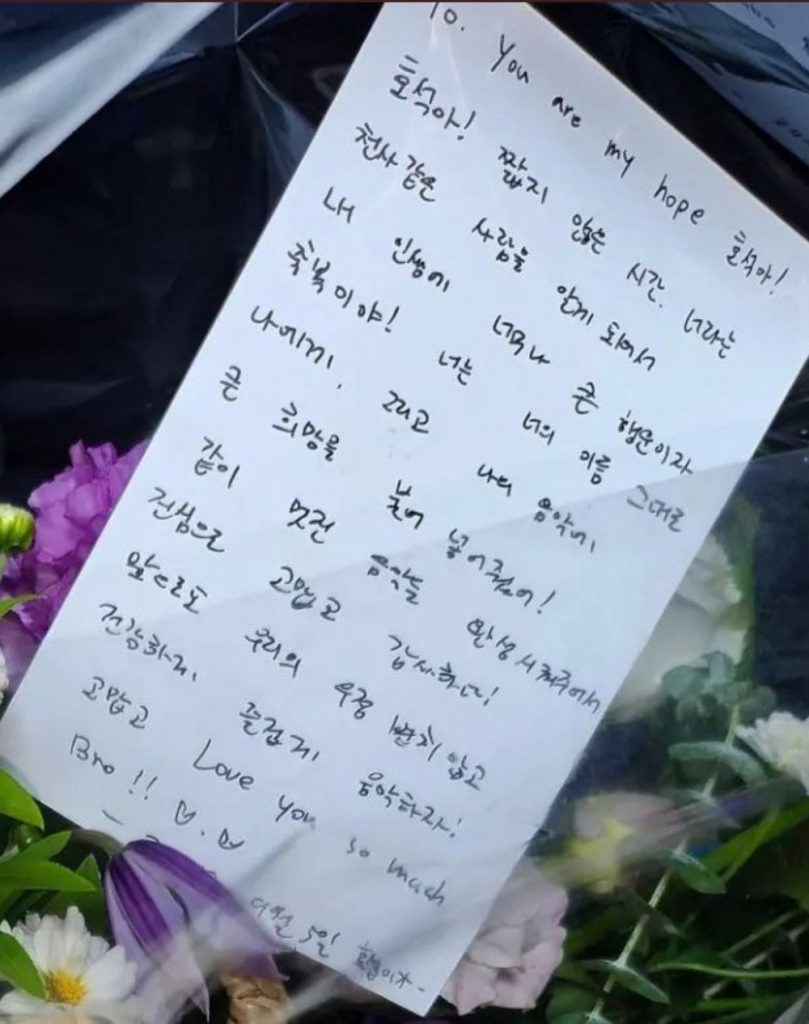 To. You are my hope 호석아!
호석아! 짧지 않은 시간. 너라는
천사같은 사람을 알게 되어서
내 인생에 너무나 큰 행운이자
축복이야! 너는 너의 이름 그대로
나에게, 그리고 나의 음악에,
큰 희망을 불어 넣어줬어!
같이 멋진 음악을 완성시켜주어서
진심으로 고맙고 감사하다!
앞으로도 우리의 우정 변치 않고
건강하게, 즐겁게 음악하자!
고맙고 Love you so much
Bro!! ♡.♡
5일